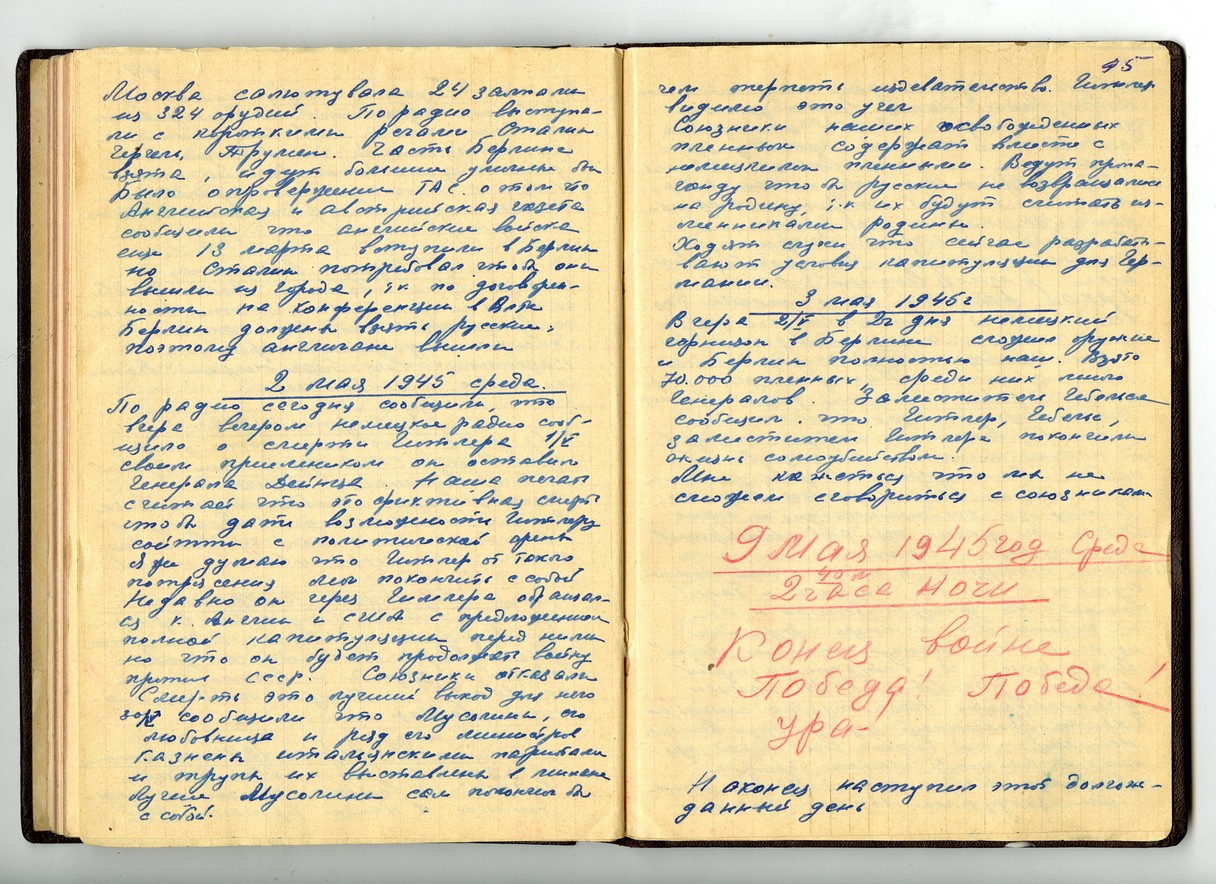 Москва салютувала 24 залпами
из 324 орудий. По радио выступа-
ли с короткими речами Сталин
Черчель, Трумен. Часть Берлина
взята, идут большие уличные бои
Было опровержении ТАС о том что
Английская и австрийская газета
сообщили что английские войска
еще 13 марта вступили в Берлин
но Сталин потребовал чтоб они
вышли из города, т.к. по договорен-
ности на конференции в Ялте
Берлин должны взять русские,
поэтому англичане вышли
2 мая 1945 среда.
По радио сегодня сообщили, что
вчера вечером немецкое радио сооб-
щило о смерти Гитлера 1/V
своим приемником он оставил
Генерала Дейница. Наша печать
считает что это фиктивная смерть
чтоб дать возможности Гитлеру
сойтти с политической арены
Я же думаю что Гитлер от такого
потрясения мог покончить с собой
Недавно он через Гимлера обращал-
ся к Англии и США с предложением
полной капитуляции перед ними
но что он будет продолжать войну
против СССР. Союзники отказали
Смерть это лучший выход для него
30/IV сообщили что Мусолини, его
любовница и ряд его министров
казнены итальянскими
и трупы их выставлены в милане
Лучше Мусолини сам покончил бы
с собой.
45
чем терпеть издевательство. Гитлер
видимо это учел
Союзники наших освобожденных
пленных содержат вместе с
немецкими пленными. Ведут пропа-
ганду что бы русские не возвращались
на родину, т.к. их будут считать из-
менниками родины.
Ходят слухи что сейчас разрабаты-
вают условия капитуляции для Гер-
мании.
3 мая 1945г
Вчера 2/V в 2ч дня немецкий
горнизон в Берлине сложил оружие
и Берлин полностью наш. Взято
70.000 пленных, среди них много
Генералов. Заместитель Гебельса
сообщил что Гитлер, Гебельс,
заместитель Гитлера покончили
жизнь самоубийством.
Мне кажеться что мы не
сможем сговориться с союзниками
9 Мая 1945 год Среда
40 м
2 часа ночи
Конец войне
Победа! Победа!
Ура-
Наконец наступил этот долгож-
данный день